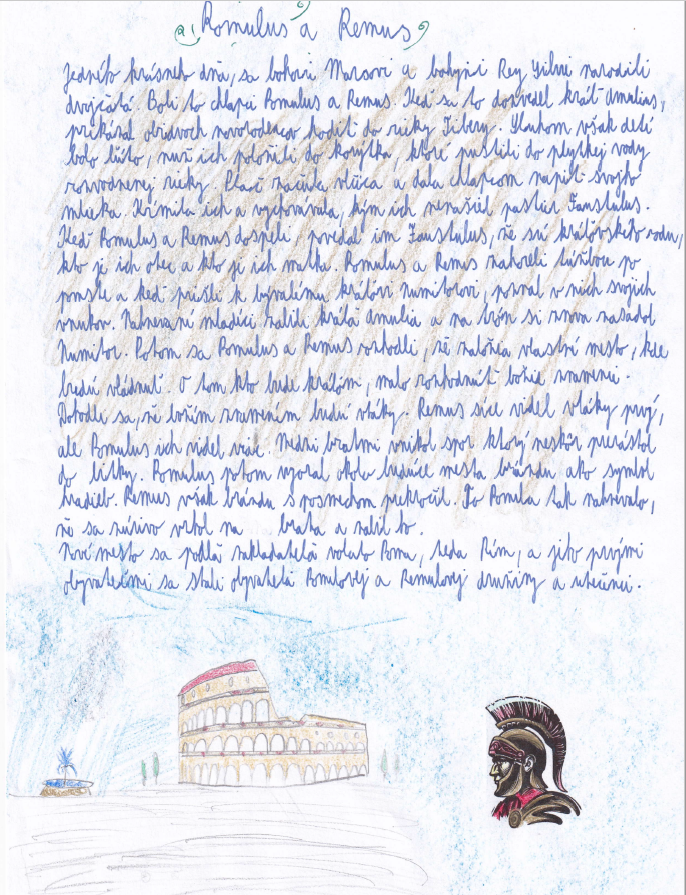 Romulus a Remus
Jedného krásneho dňa, sa bohovi Marsovi a bohyni Rey Silvii narodili
dvojčatá. Boli to chlapci Romulus a Remus. Keď sa to dozvedel kráľ Amulius,
prikázal obidvoch novorodencov hodiť do rieky Tibery. Sluhom však detí
bolo ľúto, nuž ich položili do korýtka, ktoré pustili do plytkej vody
rozvodnenej rieky. Plač začula vlčica a dala chlapcom napiť svojho
mlieka. Kŕmila ich a vychovávala, kým ich nenašiel pastier Faustulus.
Keď Romulus a Remus dospeli, povedal im Faustulus, že sú kráľovského rodu,
kto je ich otec a kto je ich matka. Romulus a Remus zahoreli túžbou po
pomste a keď prišli k bývalému kráľovi Numitorovi, poznal v nich svojich
vnukov. Nahnevaní mladíci zabili kráľa Amulia a na trón si znova zasadol
Numitor. Potom sa Romulus a Remus rozhodli, že založia vlastné mesto, kde
budú vládnuť. O tom kto bude kráľom, malo rozhodnúť božie znamenie.
Dohodli sa, že božím znamením budú vtáky. Remus síce videl vtáky prvý,
ale Romulus ich videl viac. Medzi bratmi vznikol spor ktorý neskôr prerástol
do bitky. Romulus potom vyoral okolo budúce mesta brázdu ako symbol
hradieb. Remus však brázdu s posmechom prekročil. To Romula tak nahnevalo,
že sa zúrivo vrhol na brata a zabil ho.
Nové mesto sa podľa zakladateľa volalo Roma, teda Rím, a jeho prvými
obyvateľmi sa stali obyvatelia Romulovej a Remulovej družiny a utečenci.